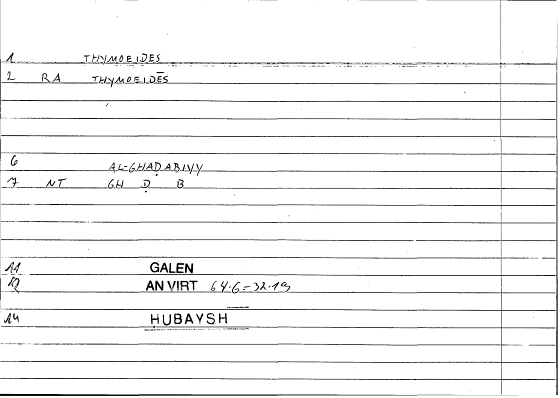 1 THYMOEIDES
2 RA THYMOEIDĒS
6 AL-GHAḌABIYY
7 NT GH Ḍ B
11 GALEN
12 AN VIRT 64.6=32.19
14 ḤUBAYSH